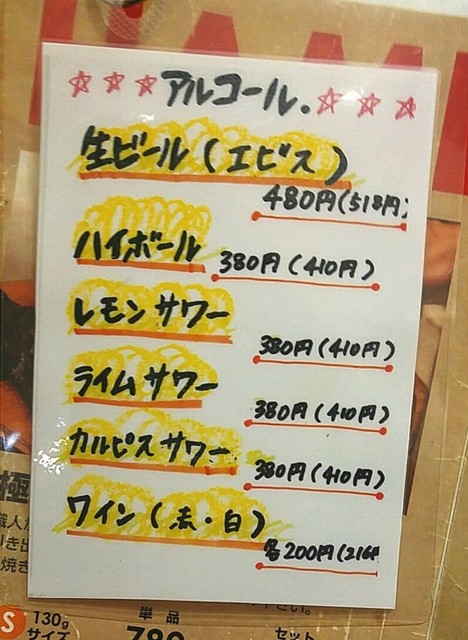 ☆☆☆アルコール.☆☆☆
生ビール(エビス)
480円(518円)
ハイボール
380円(410円)
レモンサワー
380円(410円)
ライムサワー
380円(410円)
カルピスサワー
380円(410円)
ワイン(赤・白)
各200円(216円
極
職人
き出
焼き
S 130g
サイズ
単品
790
セット